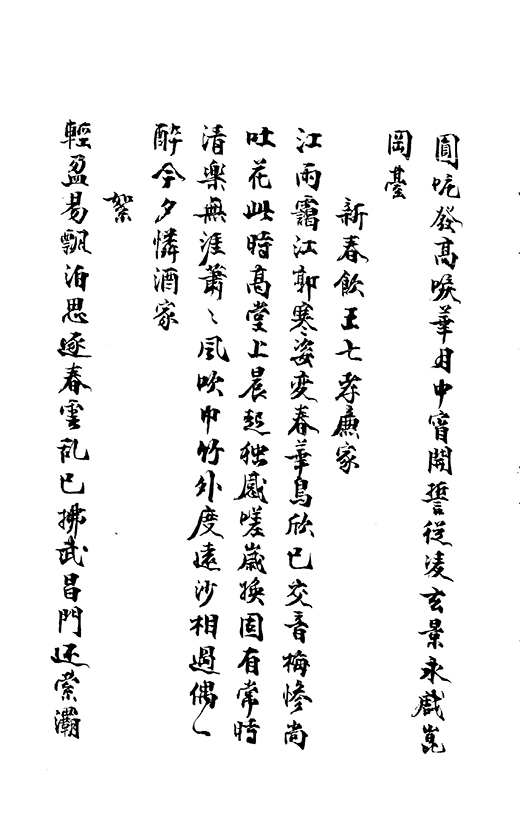 圓吭發高唳華月中宵開誓從凌玄景永戲崑
岡臺
新春飲王七孝廉家
江雨霜江郭寒姿変春華鳥欣已交音梅慘尚
吐花此時高堂上晨起独感嗟歲換固有常時
清樂無涯蕭〻風吹巾竹外度遠沙相過偶〻
酔今夕憐酒家
絮
輕盈易飄泊思逐春雲乱已拂武昌門还縈灞